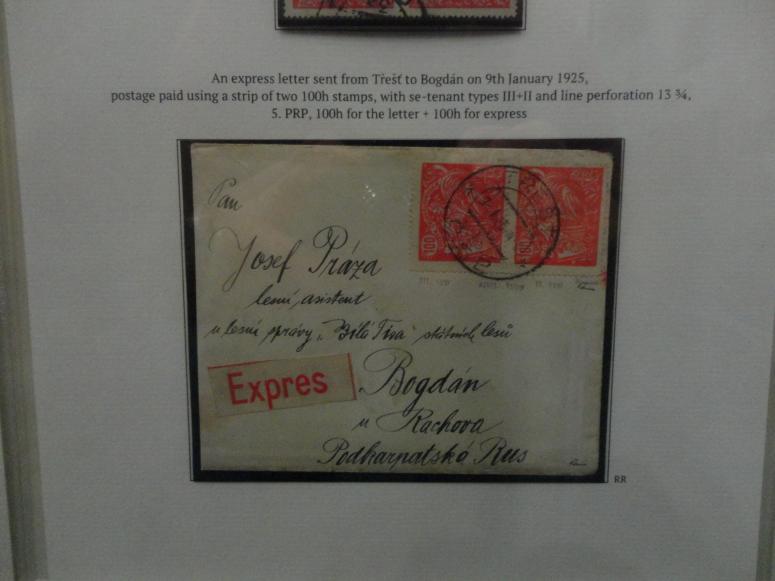 An express letter sent from Třešť to Bogdán on 9th January 1925,
postage paid using a strip of two 100h stamps, with se-tenant types III+II and line perforation 13 ¾,
5. PRP, 100h for the letter + 100h for express
Pan
Josef Práza
lesní asistent
u lesní správy „Bílá Tisa" státních lesů
Expres
Bogdán
u Rachova
Podkarpatská Rus
100
100
RR